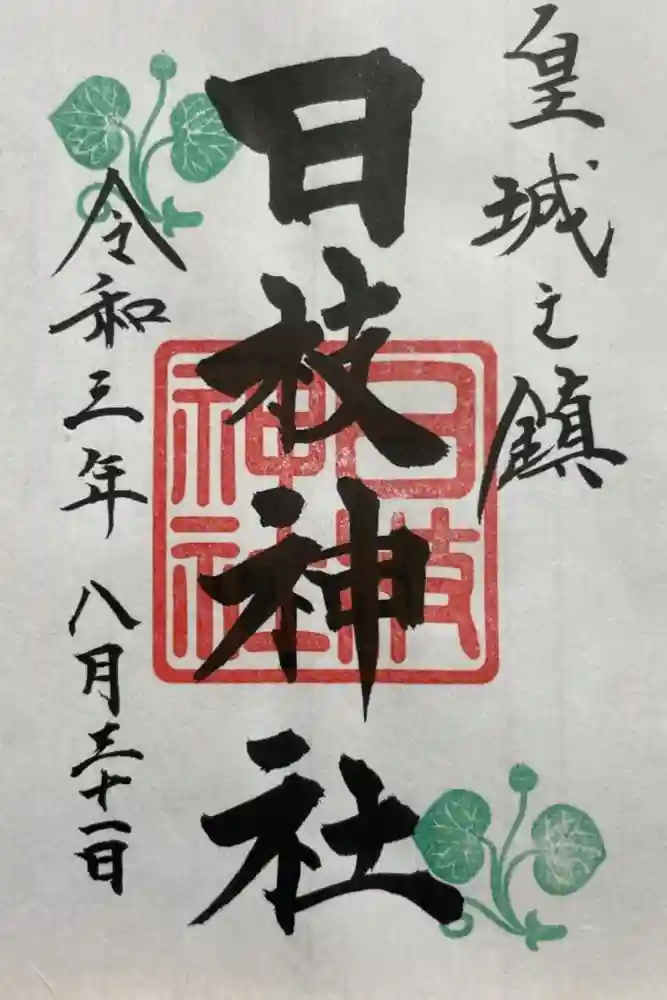 皇城之鎮
日枝神社
日枝神社
令和三年八月三十一日